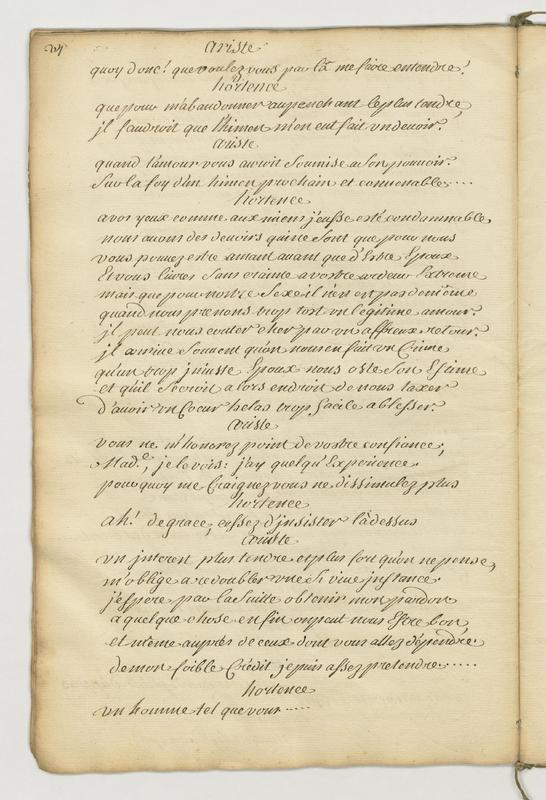 24
ariste
quoy donc! que voulez vous par là me faire entendre?
hortence
que pour m'abandonner au penchant le plus tendre,
jl faudroit que l'himen m'en eut fait vn devoir.
ariste
quand l'amour vous auroit soumise a son pouvoir.
sur la foy d'un himen prochain et convenable....
hortence
a vos yeux comme aux miens j'eusse esté condamnable,
nous avons des devoirs qui ne sont que pour nous
vous pouvez estre amant avant que d'Estre Epoux
Et vous livrer sans crainte a vostre ardeur Extreme
mais que pour nostre sexe il n'en est pas de même
quand nous prenons trop tost un legitime amour.
jl peut nous couter cher par un affreux retour.
jl arrive souvent qu'on nous en fait un Crime
qu'un trop jnjuste Epoux nous oste son Estime
et qu'il se croit alors endroit de nous taxer
d'avoir un Coeur helas trop facile a blesser.
ariste
vous ne m'honorez point de vostre confiance,
Mad.e, je le vois: j'ay quelqu'Experience
pourquoy me Craignez vous ne dissimulez plus
hortence
ah! de grace, cessez d'jnsister là dessus
ariste
vn jnterest plus tendre et plus fort qu'on ne pense,
m'oblige a redoubler vne si vive jnstance
j'espere par la suitte obtenir mon pardon
a quelque chose enfin on peut nous Estre bon
et même auprès de ceux dont vous allez dépendre
de mon foible Crédit je puis assez pretendre.....
hortence
vn homme tel que vous.....